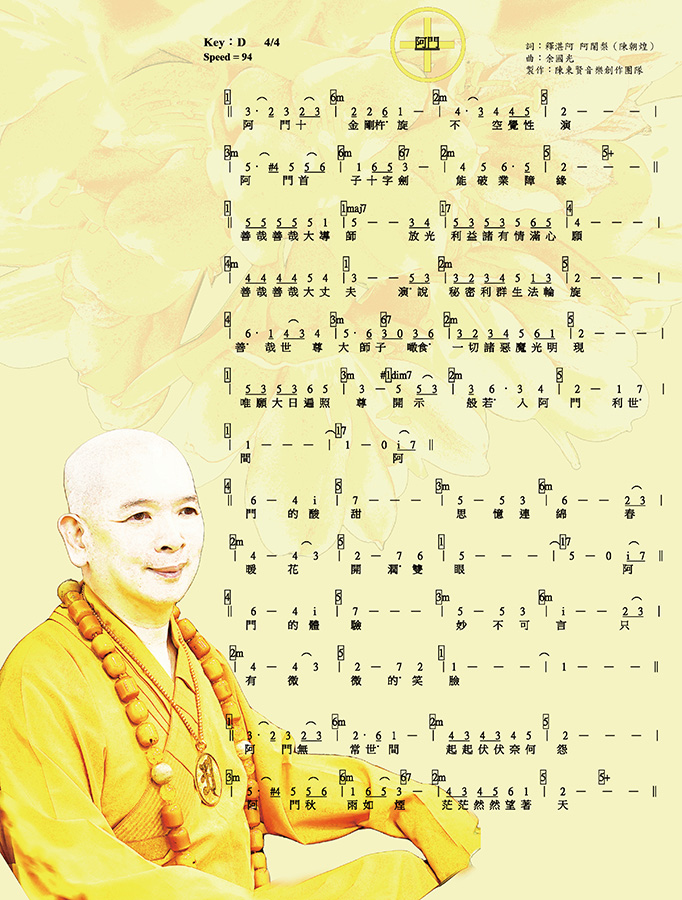 阿門
Key：D 4/4
Speed = 94
詞：釋湛阿 阿闍梨（陳朝煌）
曲：余國光
製作：陳東賢音樂創作團隊
1 6m 2m 5
‖ 3· 2 3 2 3 | 2 2 6 1 － | 4· 3 4 4 5 | 2 － － － |
阿 門十 金剛杵˙旋 不 空覺性 演
3m 6m 67 2m 5 5+
| 5· #4 5 5 6 | 1 6 5 3 － | 4 5 6· 5 | 2 － － － ‖
阿 門首 子十字劍 能破業障 緣
1 1maj7 17 4
‖ 5 5 5 5 5 1 | 5 － － 3 4 | 5 3 5 3 5 6 5 | 4 － － － |
善哉善哉大導 師 放光 利益諸有情滿心 願
4m 1 2m 5
| 4 4 4 4 5 4 | 3 － － 5 3 | 3 2 3 4 5 1 3 | 2 － － － |
善哉善哉大丈 夫 演˙說 秘密利群生法輪 旋
4 3m 67 2m 5
| 6· 1 4 3 4 | 5· 6 3 0 3 6 | 3 2 3 4 5 6 1 | 2 － － － |
善˙ 哉世 尊 大師子 噉食˙ 一切諸惡魔光明 現
1 3m #1dim7 2m 5
| 5 3 5 3 6 5 | 3 － 5 5 3 | 3 6· 3 4 | 2 － 1 7 |
唯願大日遍照 尊 開示 般若˙ 入阿 門 利世˙
1 17
| 1 － － － | 1 － 0 i 7 ‖
間 阿
4 5 3m 6m
‖ 6 － 4 i | 7 － － － | 5 － 5 3 | 6 － － 2 3 |
門 的酸 甜 思 憶連 綿 春
2m 5 1 17
| 4 － 4 3 | 2 － 7 6 | 5 － － － | 5 － 0 i 7 |
暖 花 開 潤˙雙 眼 阿
4 5 3m 6m
‖ 6 － 4 i | 7 － － － | 5 － 5 3 | i － － 2 3 |
門 的體 驗 妙 不可 言 只
2m 5 1
| 4 － 4 3 | 2 － 7 2 | 1 － － － | 1 － － － ‖
有 微 微 的˙笑 臉
1 6m 2m 5
‖ 3· 2 3 2 3 | 2· 6 1 － | 4 3 4 3 4 5 | 2 － － － |
阿 門無 常世˙間 起起伏伏奈何 怨
3m 6m 67 2m 5 5+
| 5· #4 5 5 6 | 1 6 5 3 － | 4 3 4 5 6 1 | 2 － － － ‖
阿 門秋 雨如 煙 茫茫然然望著 天